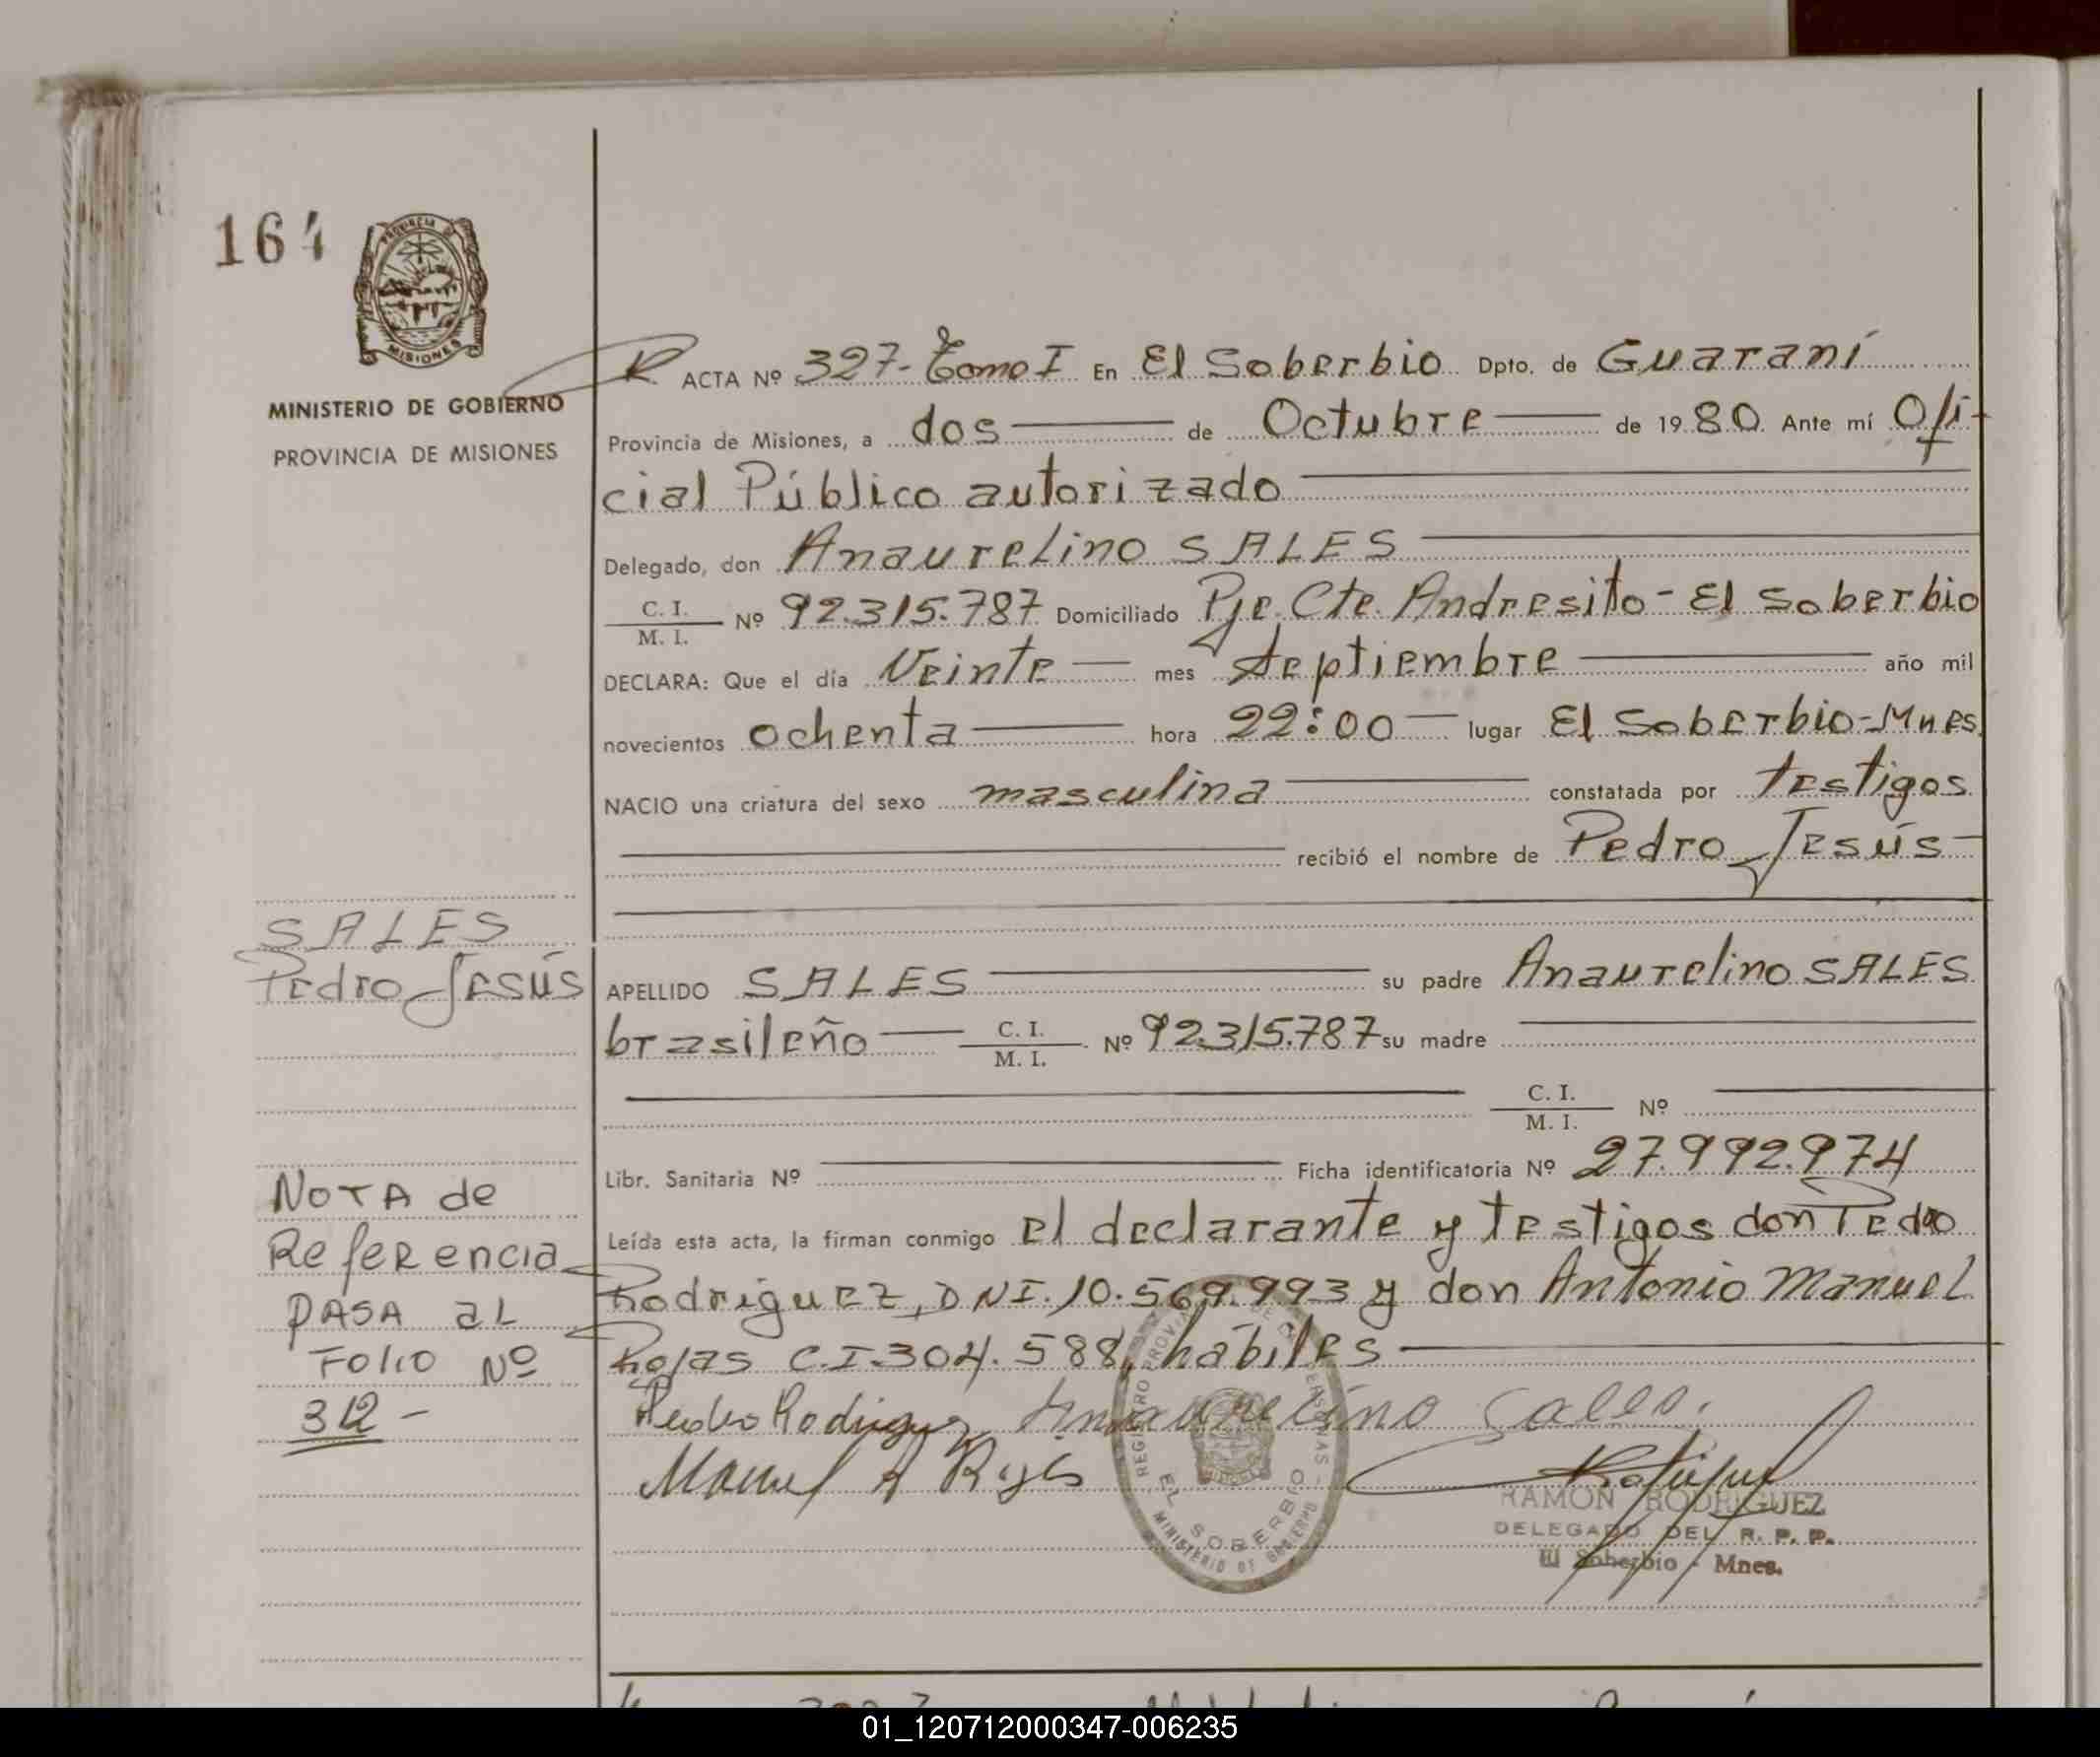 164
PROVINCIA DE
MISIONES
MINISTERIO DE GOBIERNO
PROVINCIA DE MISIONES
R ACTA Nº 327- Tomo I En El Soberbio Dpto. de Guaraní
Provincia de Misiones, a dos de Octubre de 1980 Ante mí Ofi-
cial Público autorizado
Delegado, don Anaurelino SALES
C. I. / M. I. Nº 92.315.787 Domiciliado Pje. Cte. Andresito - El Soberbio
DECLARA: Que el día Veinte mes Septiembre año mil
novecientos ochenta hora 22:00 lugar El Soberbio-Mnes
NACIO una criatura del sexo masculina constatada por testigos
recibió el nombre de Pedro Jesús
SALES
Pedro Jesús
APELLIDO SALES su padre Anaurelino SALES
brasileño C. I. / M. I. Nº 92.315.787 su madre
C. I. / M. I. Nº
Libr. Sanitaria Nº Ficha identificatoria Nº 27.992.974
Leída esta acta, la firman conmigo el declarante y testigos don Pedro
Rodriguez, DNI. 10.569.993 y don Antonio Manuel
Rojas C.I. 304.588, hábiles
NOTA de
Referencia
PASA al
Folio Nº
312 -
Pedro Rodriguez Anaurelino Sales.
Manuel A Rojas
REGISTRO PROVINCIAL DE LAS PERSONAS -
EL SOBERBIO
MINISTERIO DE GOBIERNO
RAMON RODRIGUEZ
DELEGADO DEL R. P. P.
El Soberbio - Mnes.
01_120712000347-006235